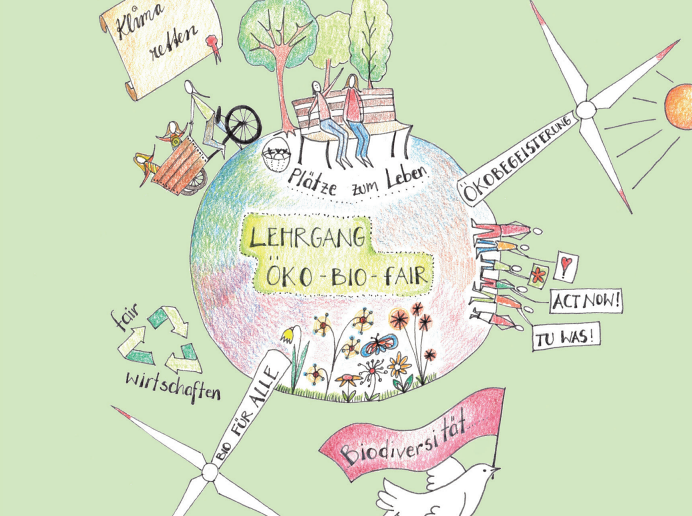 Klima
retten
Plätze zum Leben
ÖKOBEGEISTERUNG
LEHRGANG
ÖKO-BIO-FAIR
ACT NOW!
TU WAS!
fair
wirtschaften
BIO FÜR ALLE
Biodiversität